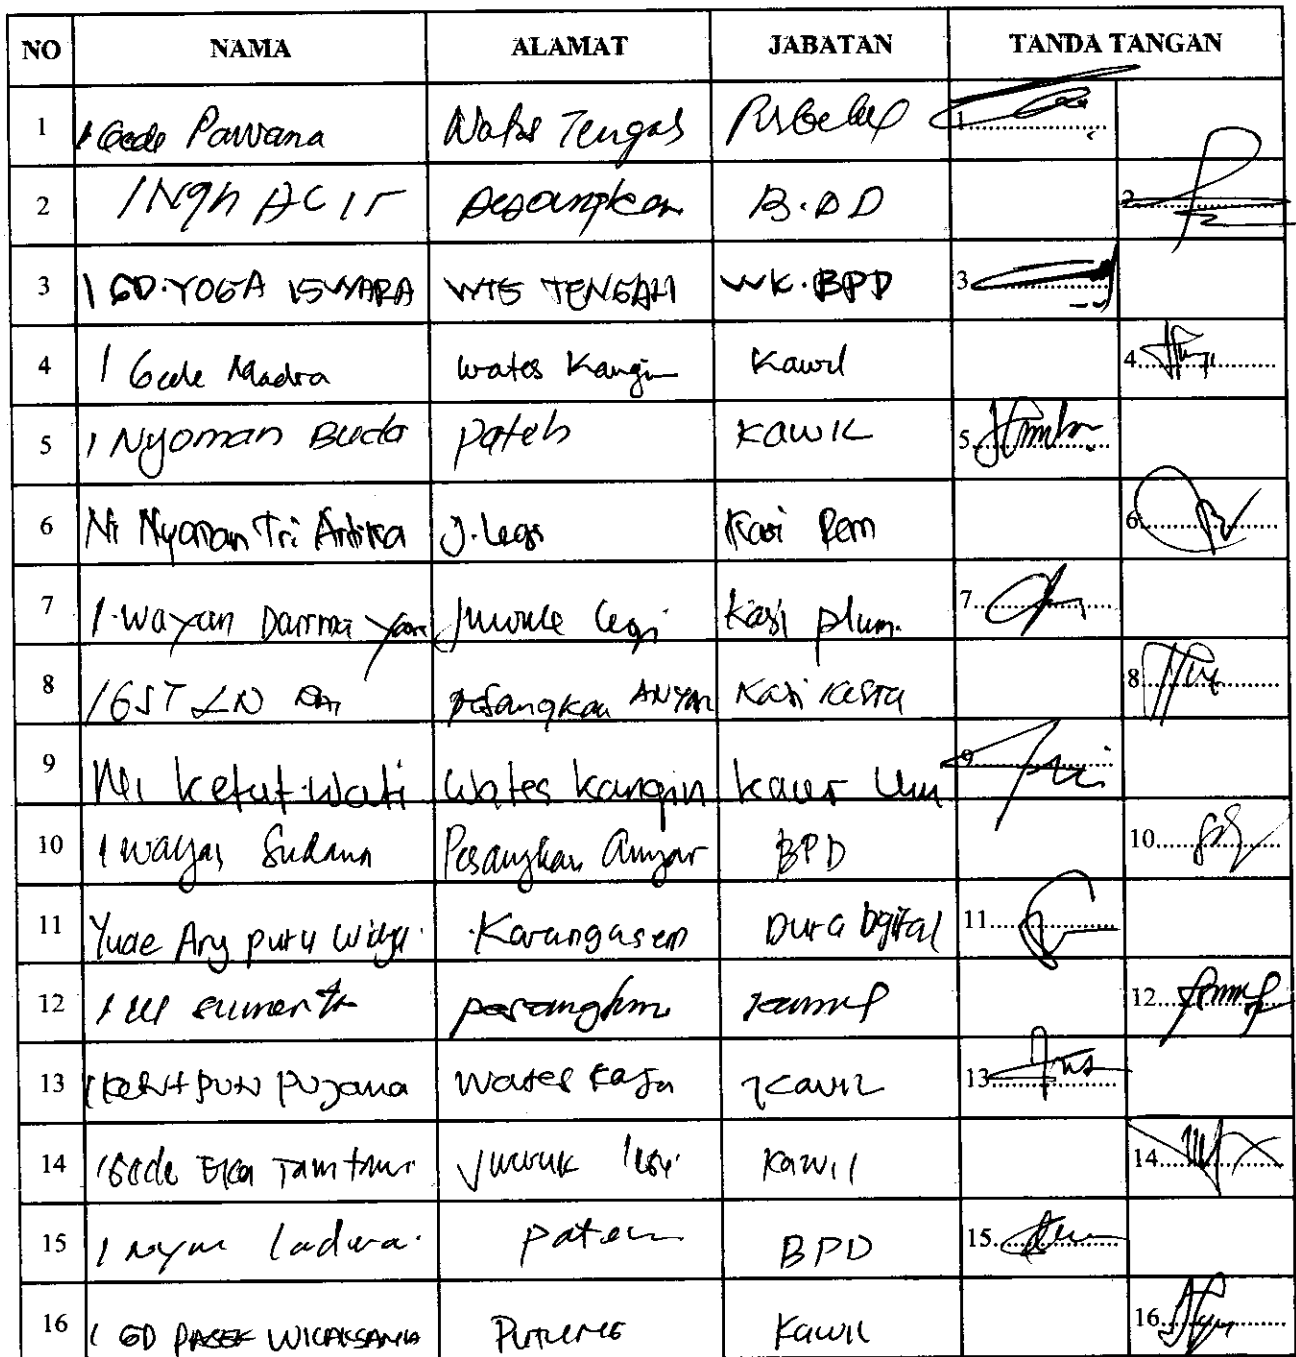 NO NAMA ALAMAT JABATAN TANDA TANGAN
1 I Gede Pawana Wates Tengah Prbekel 1
2 I Ngh ACIT Pesangkan B.PD 2
3 I GD.YOGA ISWARA WTS TENGAH WK.BPD 3
4 I Gede Madra Wates Kangin Kawil 4
5 I Nyoman Buda Pateh KAWIL 5
6 Ni Nyoman Tri Artika J.Legi Kasi Pem 6
7 I.Wayan Darma Yasa Juwuk Legi Kasi plum. 7
8 I GST LN Pesangkan ANYAR Kasi Kesra 8
9 Ni Ketut Wati Wates Kangin Kaur Um 9
10 I Wayan Sudana Pesangkan Anyar BPD 10
11 Yude Ary putu Widy. Karangasem Dura Digital 11
12 I sumerta pesangkan Kawil 12
13 I Pujana Wates Kaja Kawil 13
14 I Gede Eka Juwuk legi Kawil 14
15 I Nym ladwa. pateh BPD 15
16 I GD PASEK WICAKSANA Kawil 16